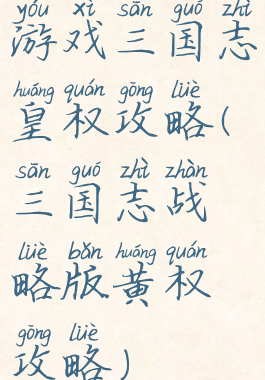 yóu xì sān guó zhì
游戏三国志
huáng quán gōng lüè
皇权攻略(
sān guó zhì zhàn
三国志战
lüè bǎn huáng quán
略版黄权
gōng lüè
攻略)